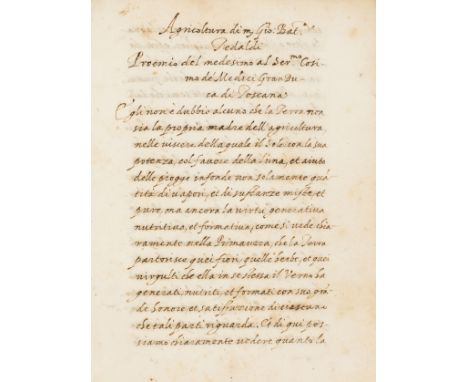 Agricoltura di m. Gio: Batta.
Tedaldi
Proemio del medesimo al Ser.mo Cosi=
mo de' Medici Gran Du=
ca di Toscana
Egli non è dubbio alcuno che la Terra non
sia la propria madre dell'agricultura,
nelle viscere della quale il Sole con la sua
potenza, col favore della Luna, et aiuto
delle piogge infonde non solamente quã
tità di vapori, et di sustanze miste, et
pure, ma ancora la virtù generativa
nutritiva, et formativa, come si vede chia
ramente nella Primavera, che la Terra
partorisce quei fiori, quelle herbe, et quei
virgulti che ella in se stessa il Verno ha
generati, nutriti, et formati con suo grã
de honore et satisfazione di ciascuno
che tali parti riguarda. Et di qui pos=
siamo chiaramente vedere quanto la